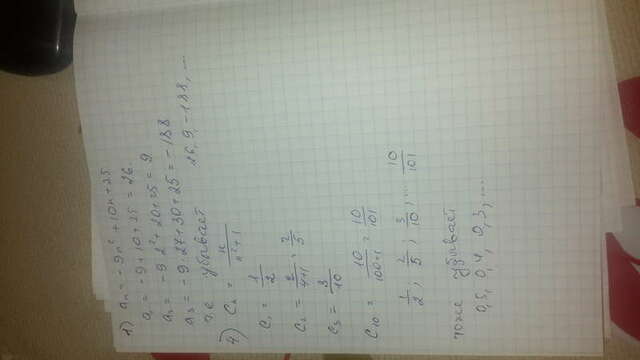 1) aₙ = -9n² + 10n + 25
a₁ = -9 + 10 + 25 = 26
a₂ = -9·2² + 20 + 25 = 9
a₃ = -9·27 + 30 + 25 = -188
26, 9, -188, ...
т.е убывает
2) Cₙ = n/(n²+1)
C₁ = 1/2
C₂ = 2/(4+1) = 2/5
C₃ = 3/10
C₁₀ = 10/(100+1) = 10/101
1/2; 2/5; 3/10; ... 10/101
тоже убывает
0,5, 0,4, 0,3, ...